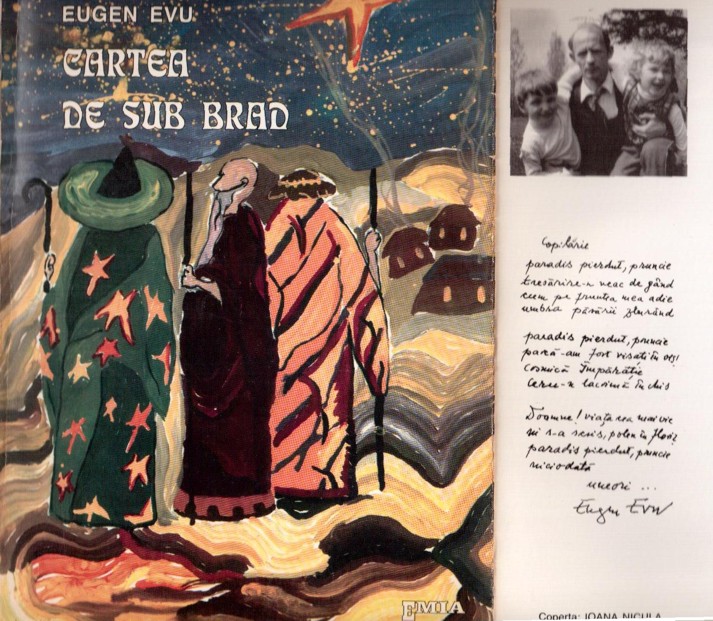 EUGEN EVU
CARTEA
DE SUB BRAD
EMIA
Copilărie
paradis pierdut, pruncie
tresărire-n veac de gând
cum pe fruntea mea adie
umbra păsării zburând
paradis pierdut, pruncie
parcă-am fost visați în ou!
Cosmică Împărăție
Ceru-n lacrimă închis
Doamne! viața mea mai vie
mi s-a scris, polen în
paradis pierdut, pruncie
niciodată
uneori ...
Eugen Evu
Coperta: IOANA NICULA